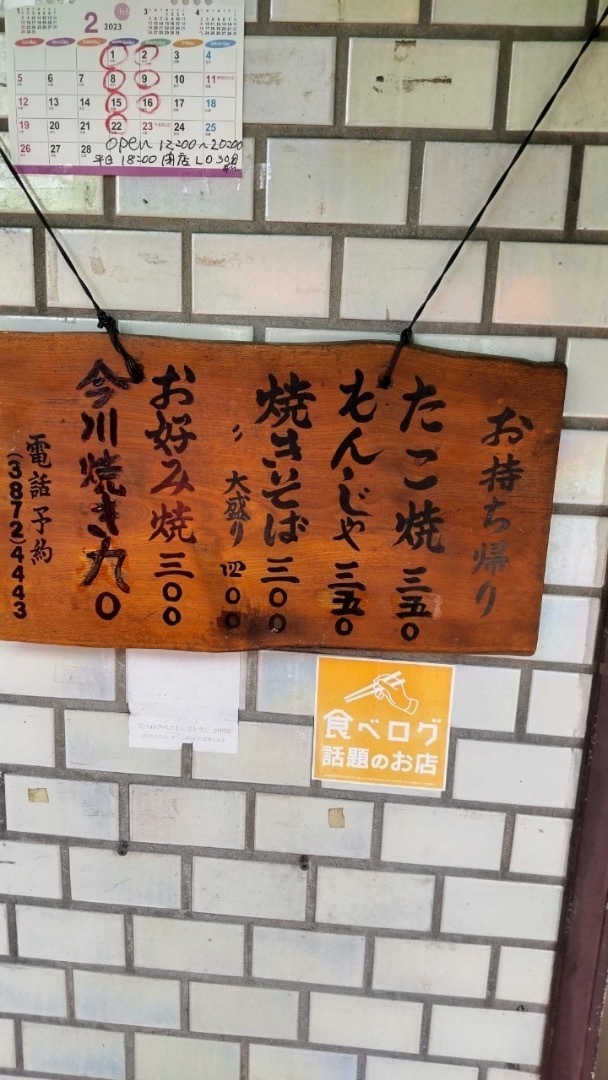 2 2023
sunday monday tuesday wednesday thursday friday saturday
1 2 3 4
5 6 7 8 9 10 11
12 13 14 15 16 17 18
19 20 21 22 23 24 25
26 27 28
open 12:00~20:00
平日 18:00 閉店 LO 30分前
お持ち帰り
たこ焼 三五〇
もんじゃ 三五〇
焼きそば 三〇〇
〃 大盛り 四〇〇
お好み焼 三〇〇
今川焼き 九〇
電話予約
(3872)4443
食べログ
話題のお店